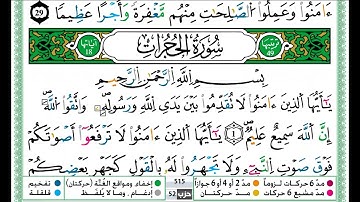 ءَامَنُوا۟ وَعَمِلُوا۟ ٱلصَّٰلِحَٰتِ مِنْهُم مَّغْفِرَةً وَأَجْرًا عَظِيمًۢا ٢٩
ترتيبها 49 سُورَةُ الحُجُرَاتِ آياتها 18
بِسْمِ ٱللَّهِ ٱلرَّحْمَٰنِ ٱلرَّحِيمِ
يَٰٓأَيُّهَا ٱلَّذِينَ ءَامَنُوا۟ لَا تُقَدِّمُوا۟ بَيْنَ يَدَىِ ٱللَّهِ وَرَسُولِهِۦ ۖ وَٱتَّقُوا۟ ٱللَّهَ ۚ
إِنَّ ٱللَّهَ سَمِيعٌ عَلِيمٌ ١ يَٰٓأَيُّهَا ٱلَّذِينَ ءَامَنُوا۟ لَا تَرْفَعُوٓا۟ أَصْوَٰتَكُمْ
فَوْقَ صَوْتِ ٱلنَّبِىِّ وَلَا تَجْهَرُوا۟ لَهُۥ بِٱلْقَوْلِ كَجَهْرِ بَعْضِكُمْ
مدّ 6 حركات لزوماً مدّ 2 أو 4 أو 6 جوازاً 515 إخفاء ومواقع الغنّة (حركتان) تفخيم
مدّ حركتان حزب 52 إدغام ، وما لا يُلفظ قلقلة